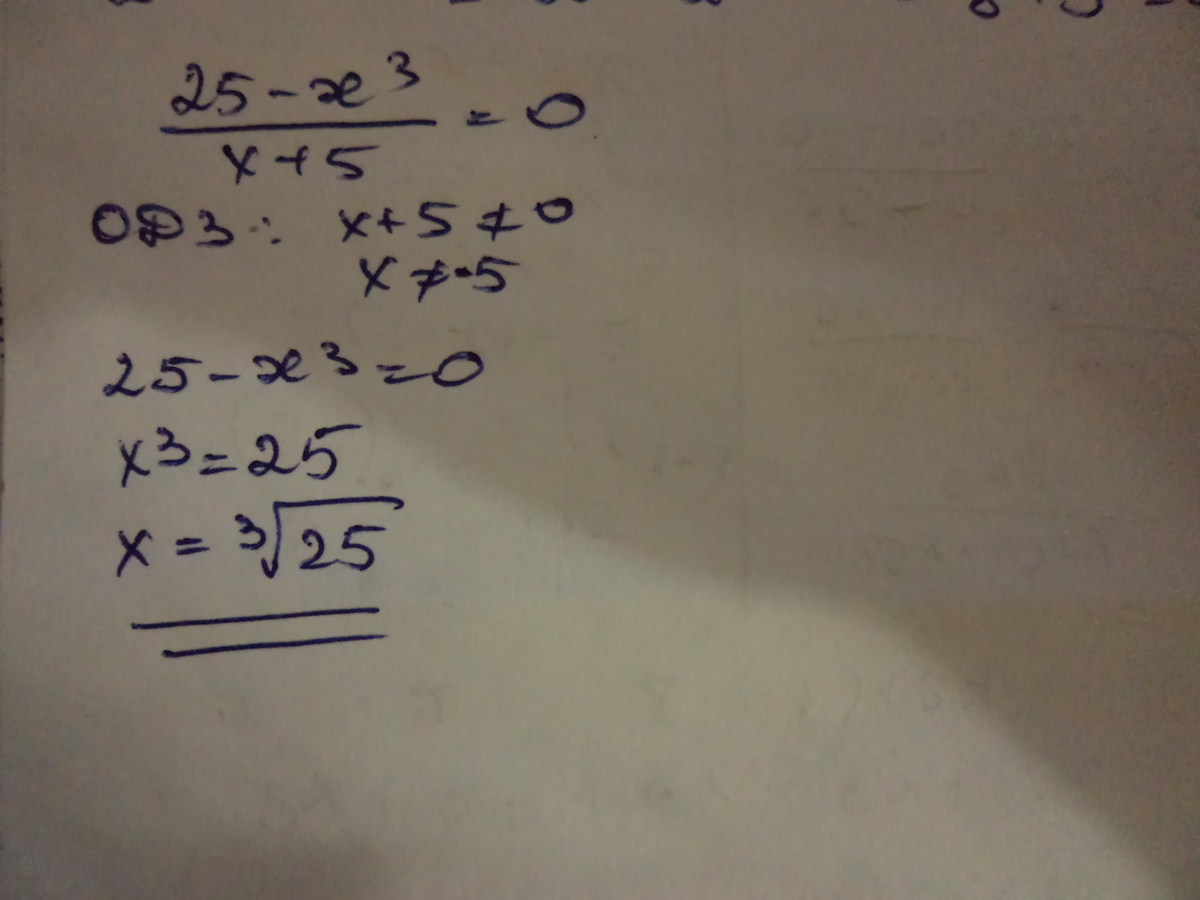 25-x³
x+5 = 0
ОДЗ: x+5≠0
x≠-5
25-x³=0
x³=25
x = ³√25